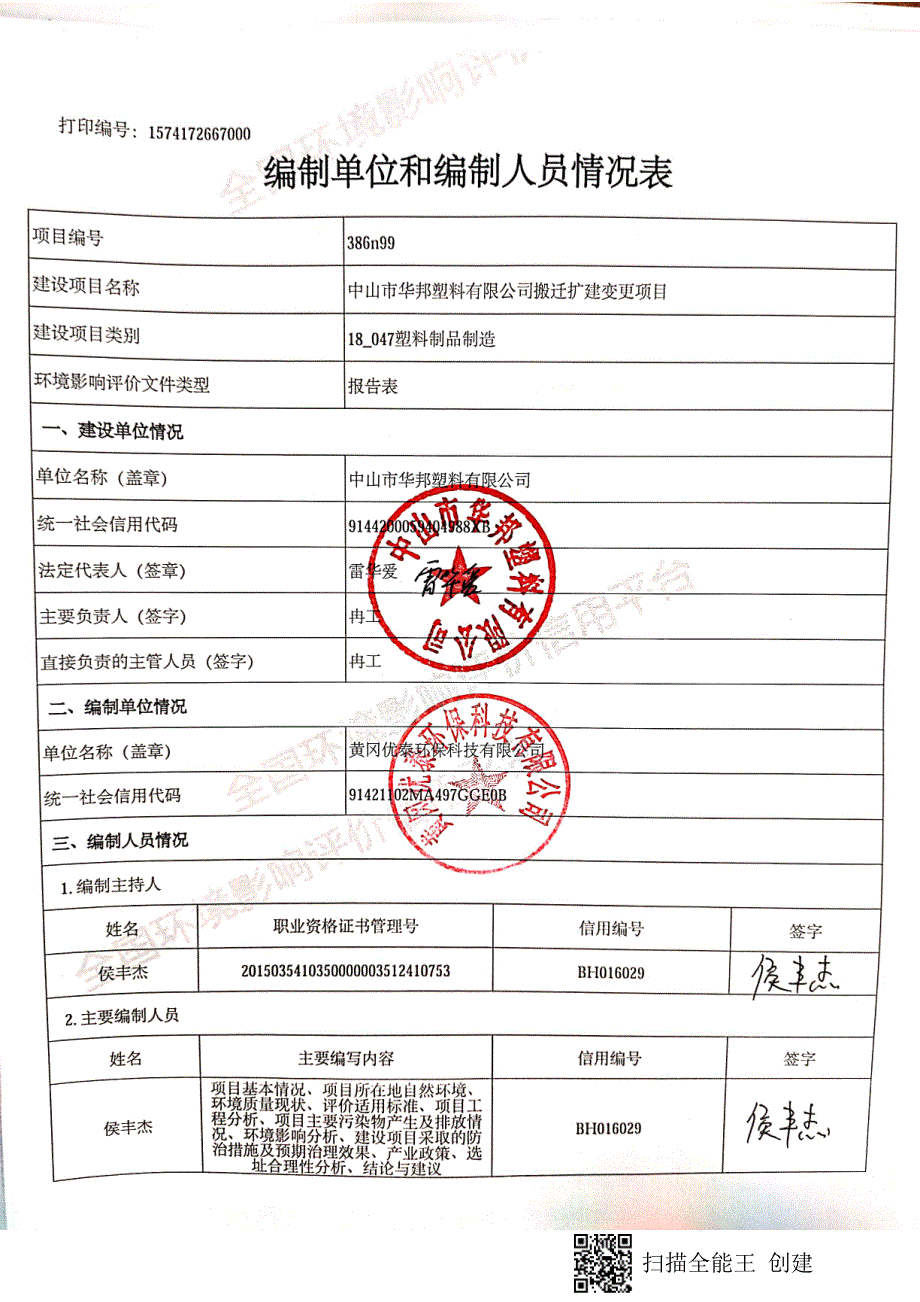 打印编号：1574172667000
编制单位和编制人员情况表
项目编号 386n99
建设项目名称 中山市华邦塑料有限公司搬迁扩建变更项目
建设项目类别 18_047塑料制品制造
环境影响评价文件类型 报告表
一、建设单位情况
单位名称（盖章） 中山市华邦塑料有限公司
统一社会信用代码 9144200059404988XB
法定代表人（签章） 雷华爱 雷华爱
主要负责人（签字） 冉工
直接负责的主管人员（签字） 冉工
中山市华邦塑料有限公司
二、编制单位情况
单位名称（盖章） 黄冈优泰环保科技有限公司
统一社会信用代码 91421102MA497GGE0B
黄冈优泰环保科技有限公司
三、编制人员情况
1.编制主持人
姓名 职业资格证书管理号 信用编号 签字
侯丰杰 2015035410350000003512410753 BH016029 侯丰杰
2.主要编制人员
姓名 主要编写内容 信用编号 签字
侯丰杰 BH016029 侯丰杰
项目基本情况、项目所在地自然环境、
环境质量现状、评价适用标准、项目工
程分析、项目主要污染物产生及排放情
况、环境影响分析、建设项目采取的防
治措施及预期治理效果、产业政策、选
址合理性分析、结论与建议
全国环境影响评价
全国环境影响评价信用平台
全国环境影响评价
扫描全能王 创建